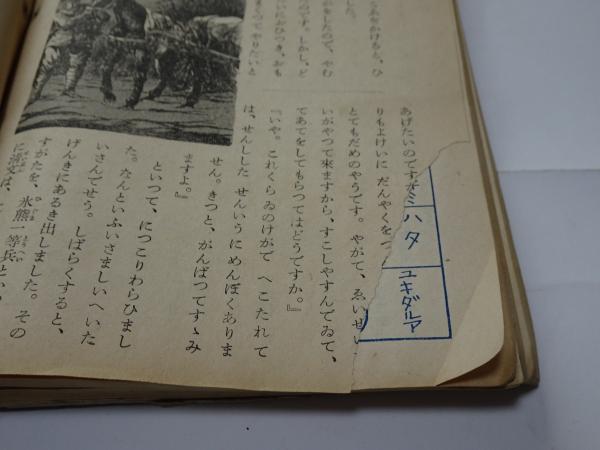 くれをかけると、ひ
した。
がをしたので、やむ
いにおひつき、おも
のです。しかし、ど
まくつてやりたいと
あげたいのですが
りもよけいに だんやくを
とてもだめのやうです。 やがて、ゑいせい
いがやつて来ますから、すこしやすんでゐて、
てあてをしてもらつてはどうですか。』
『いや。これくらゐのけがで へこたれて
は、せんしした せんいうに めんぼくありま
せん。きつと、がんばつてすゝみ
ますよ。』
といつて、につこりわらひまし
た。なんといふいさましいへいた
いさんでせう。しばらくすると、
げんきにあるき出しました。その
すがたを、氷熊一等兵
に
ハタ
ユキダルア